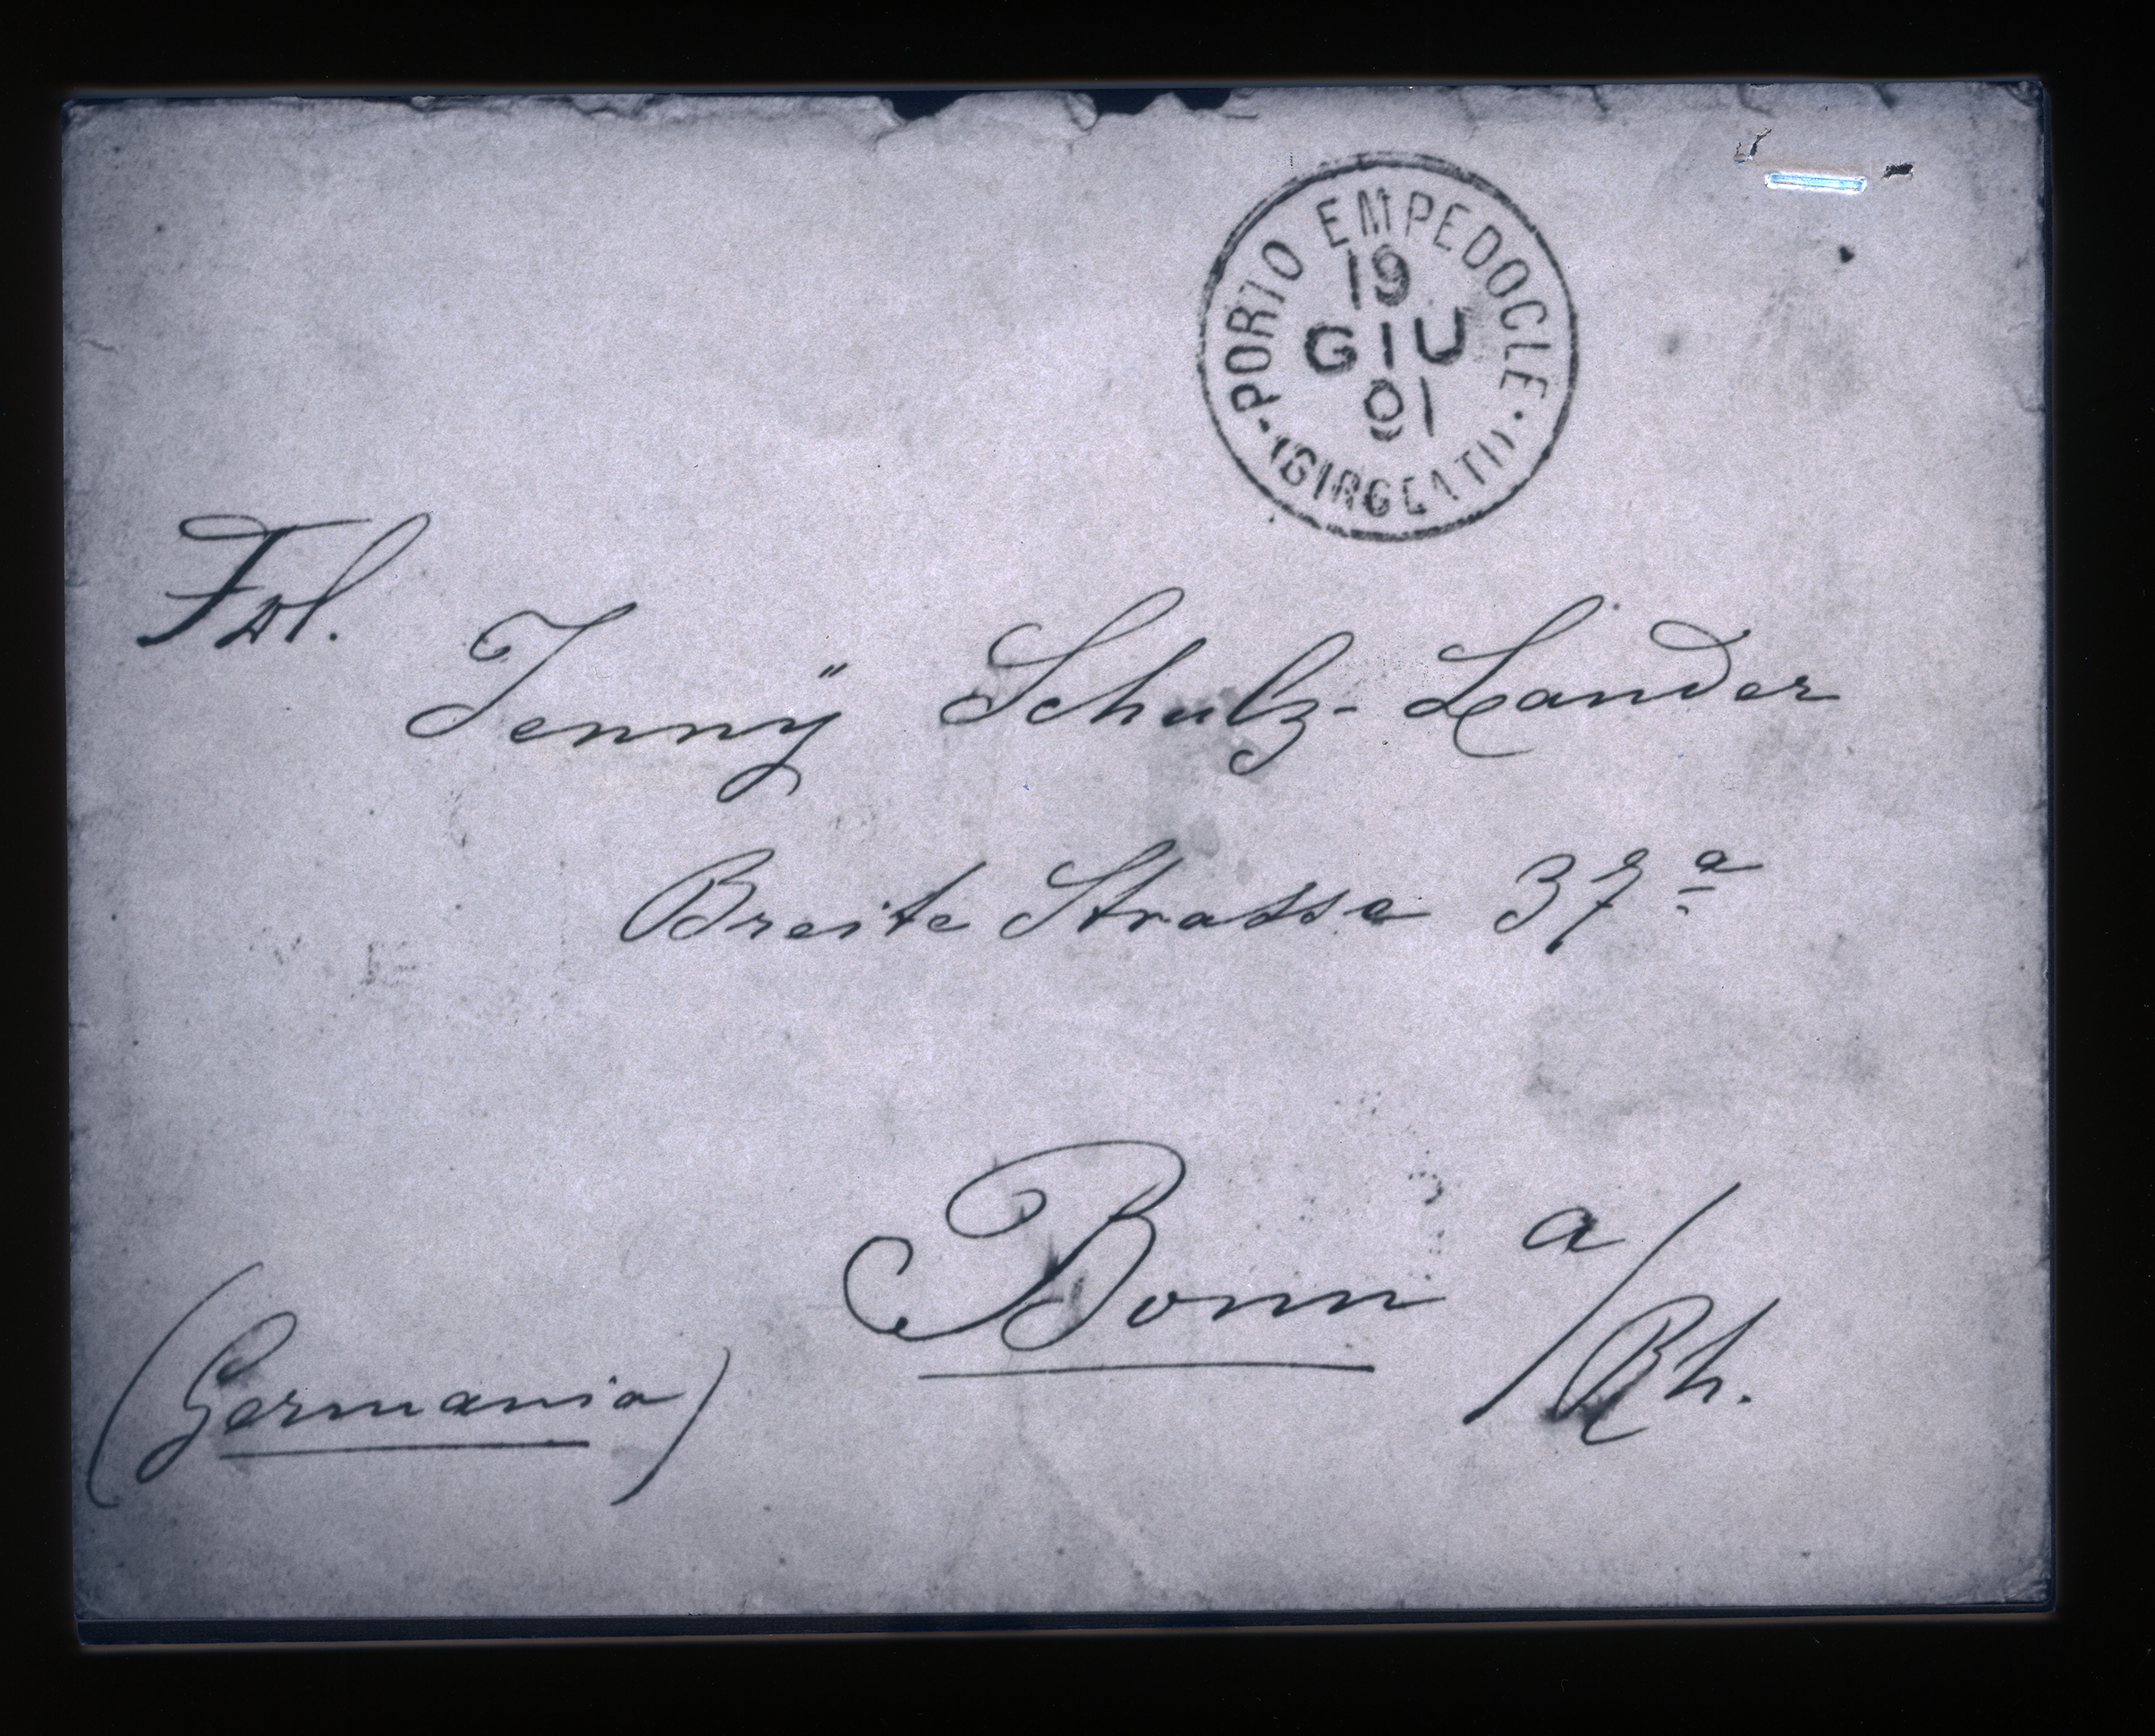 PORTO EMPEDOCLE
19
GIU
01
(GIRGENTI)
Frl.
Jenny Schulz-Lander
Breite Strasse 37a
Bonn a/Rh.
(Germania)